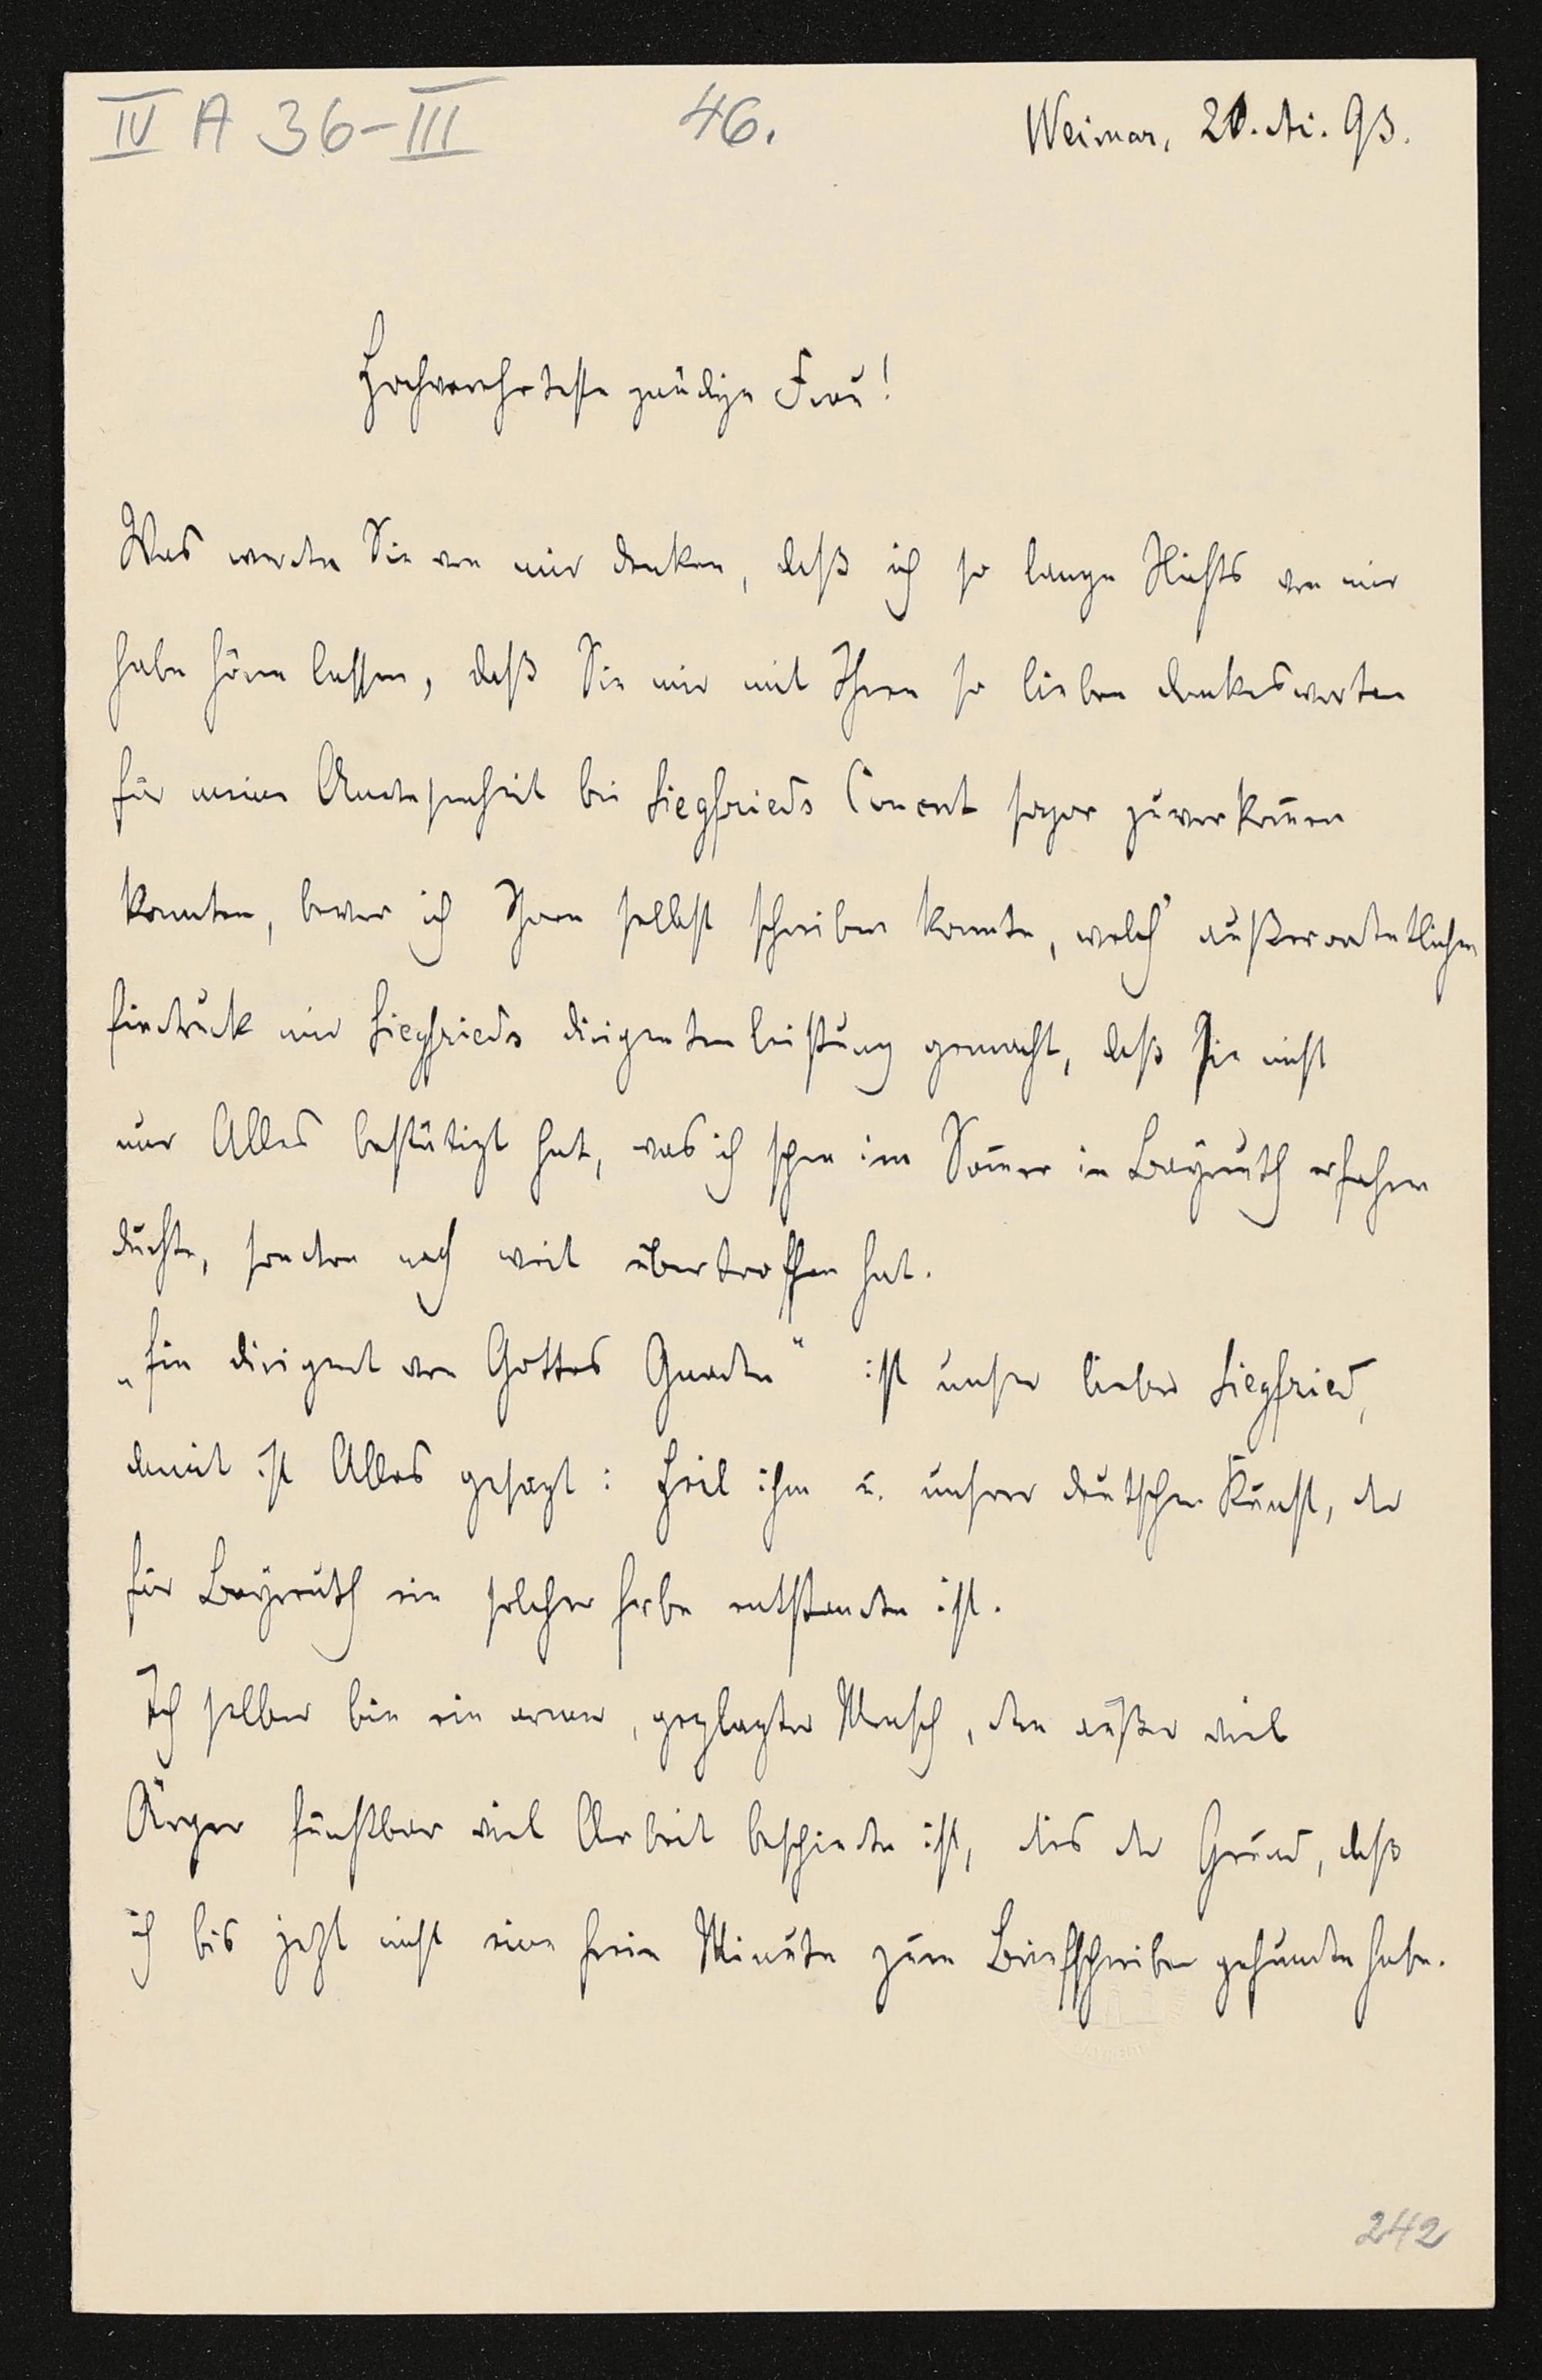 IV A 36-III
46.
Weimar, 20. XI. 93.
Hochverehrteste gnädige Frau!
Was werden Sie von mir denken, daß ich so lange Nichts von mir
habe hören lassen, daß Sie mir mit Ihren so lieben Dankesworten
für meine Anwesenheit bei Siegfrieds Concert sogar zuvorkom̄en
konnten, bevor ich Ihnen selbst schreiben konnte, welch' außerordentlichen
Eindruck mir Siegfrieds Dirigentenleistung gemacht, daß sie nicht
nur Alles bestätigt hat, was ich schon im Som̄er in Bayreuth erfahren
durfte, sondern noch weit übertroffen hat.
„Ein Dirigent von Gottes Gnaden“ ist unser lieber Siegfried,
damit ist Alles gesagt: Heil ihm u. unsrer deutschen Kunst, der
für Bayreuth ein solcher Erbe entstanden ist.
Ich selber bin ein armer, geplagter Mensch, dem außer viel
Ärger furchtbar viel Arbeit beschieden ist, dies der Grund, daß
ich bis jetzt nicht eine freie Minute zum Briefschreiben gefunden habe.
242